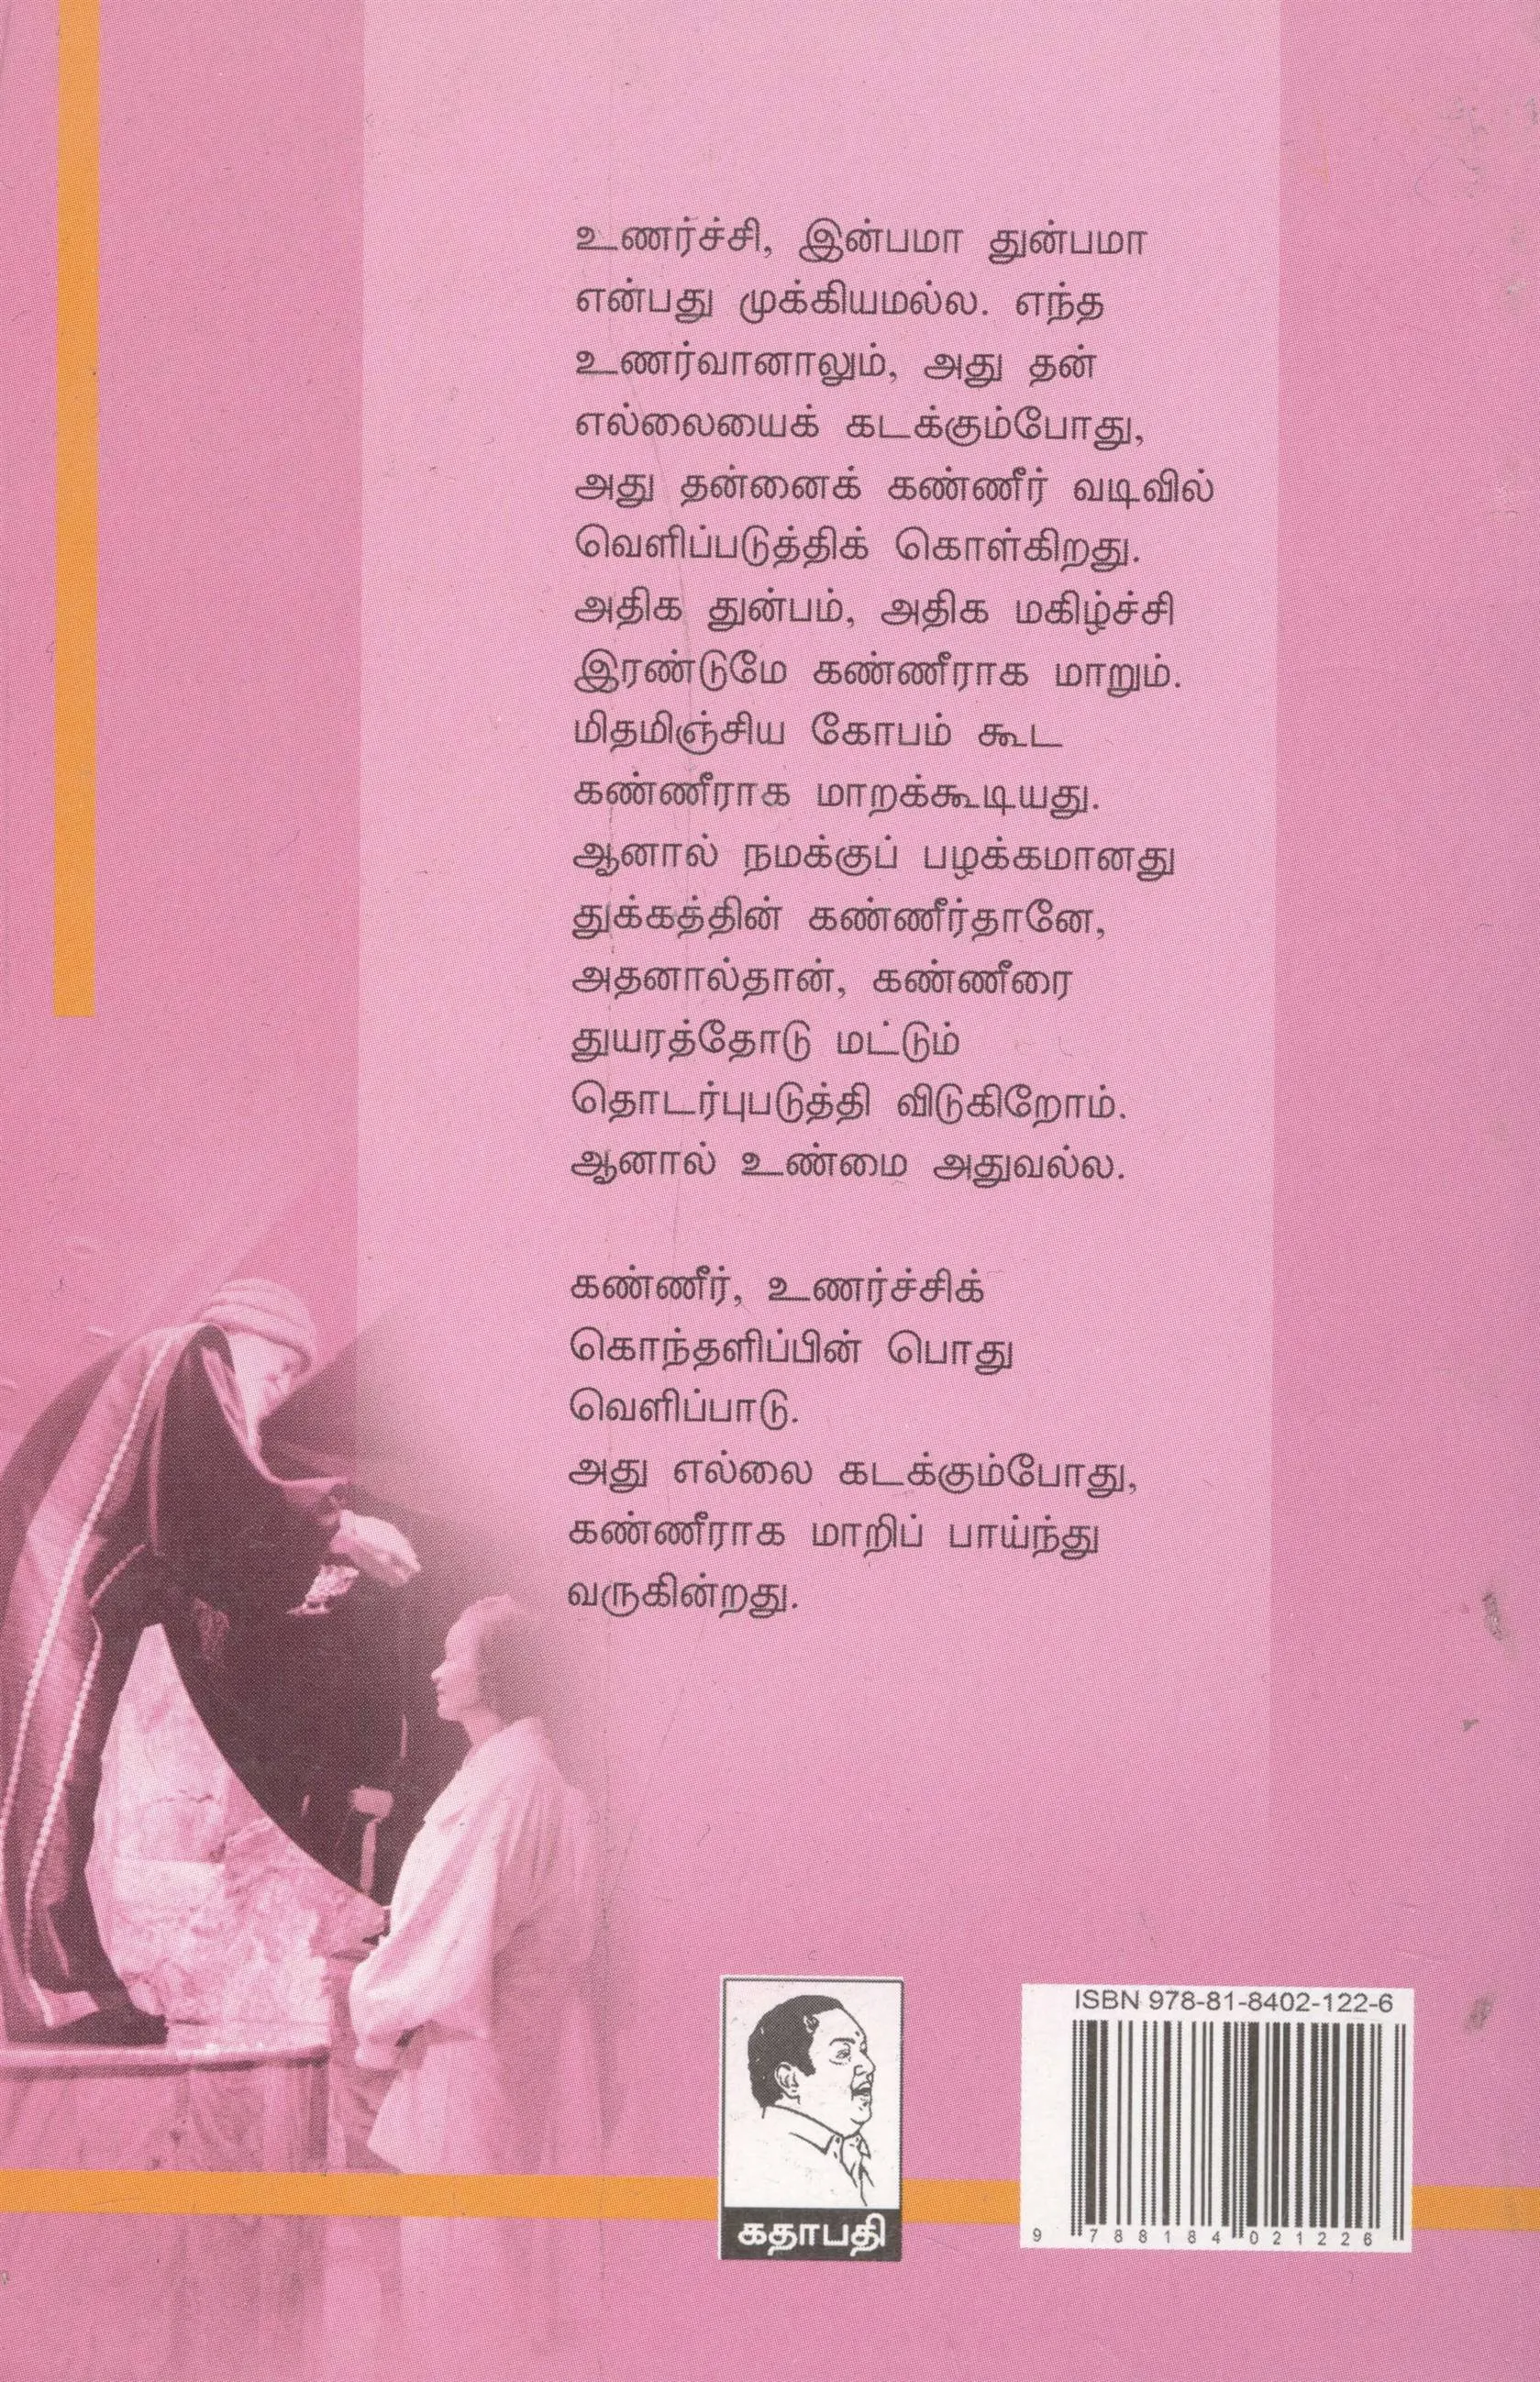 உணர்ச்சி, இன்பமா துன்பமா
என்பது முக்கியமல்ல. எந்த
உணர்வானாலும், அது தன்
எல்லையைக் கடக்கும்போது,
அது தன்னைக் கண்ணீர் வடிவில்
வெளிப்படுத்திக் கொள்கிறது.
அதிக துன்பம், அதிக மகிழ்ச்சி
இரண்டுமே கண்ணீராக மாறும்.
மிதமிஞ்சிய கோபம் கூட
கண்ணீராக மாறக்கூடியது.
ஆனால் நமக்குப் பழக்கமானது
துக்கத்தின் கண்ணீர்தானே,
அதனால்தான், கண்ணீரை
துயரத்தோடு மட்டும்
தொடர்புபடுத்தி விடுகிறோம்.
ஆனால் உண்மை அதுவல்ல.
கண்ணீர், உணர்ச்சிக்
கொந்தளிப்பின் பொது
வெளிப்பாடு.
அது எல்லை கடக்கும்போது,
கண்ணீராக மாறிப் பாய்ந்து
வருகின்றது.
கதாபதி
ISBN 978-81-8402-122-6
9 788184 021226